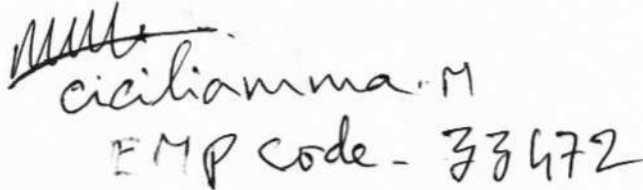 ciciliamma. M
EMP code - 33472